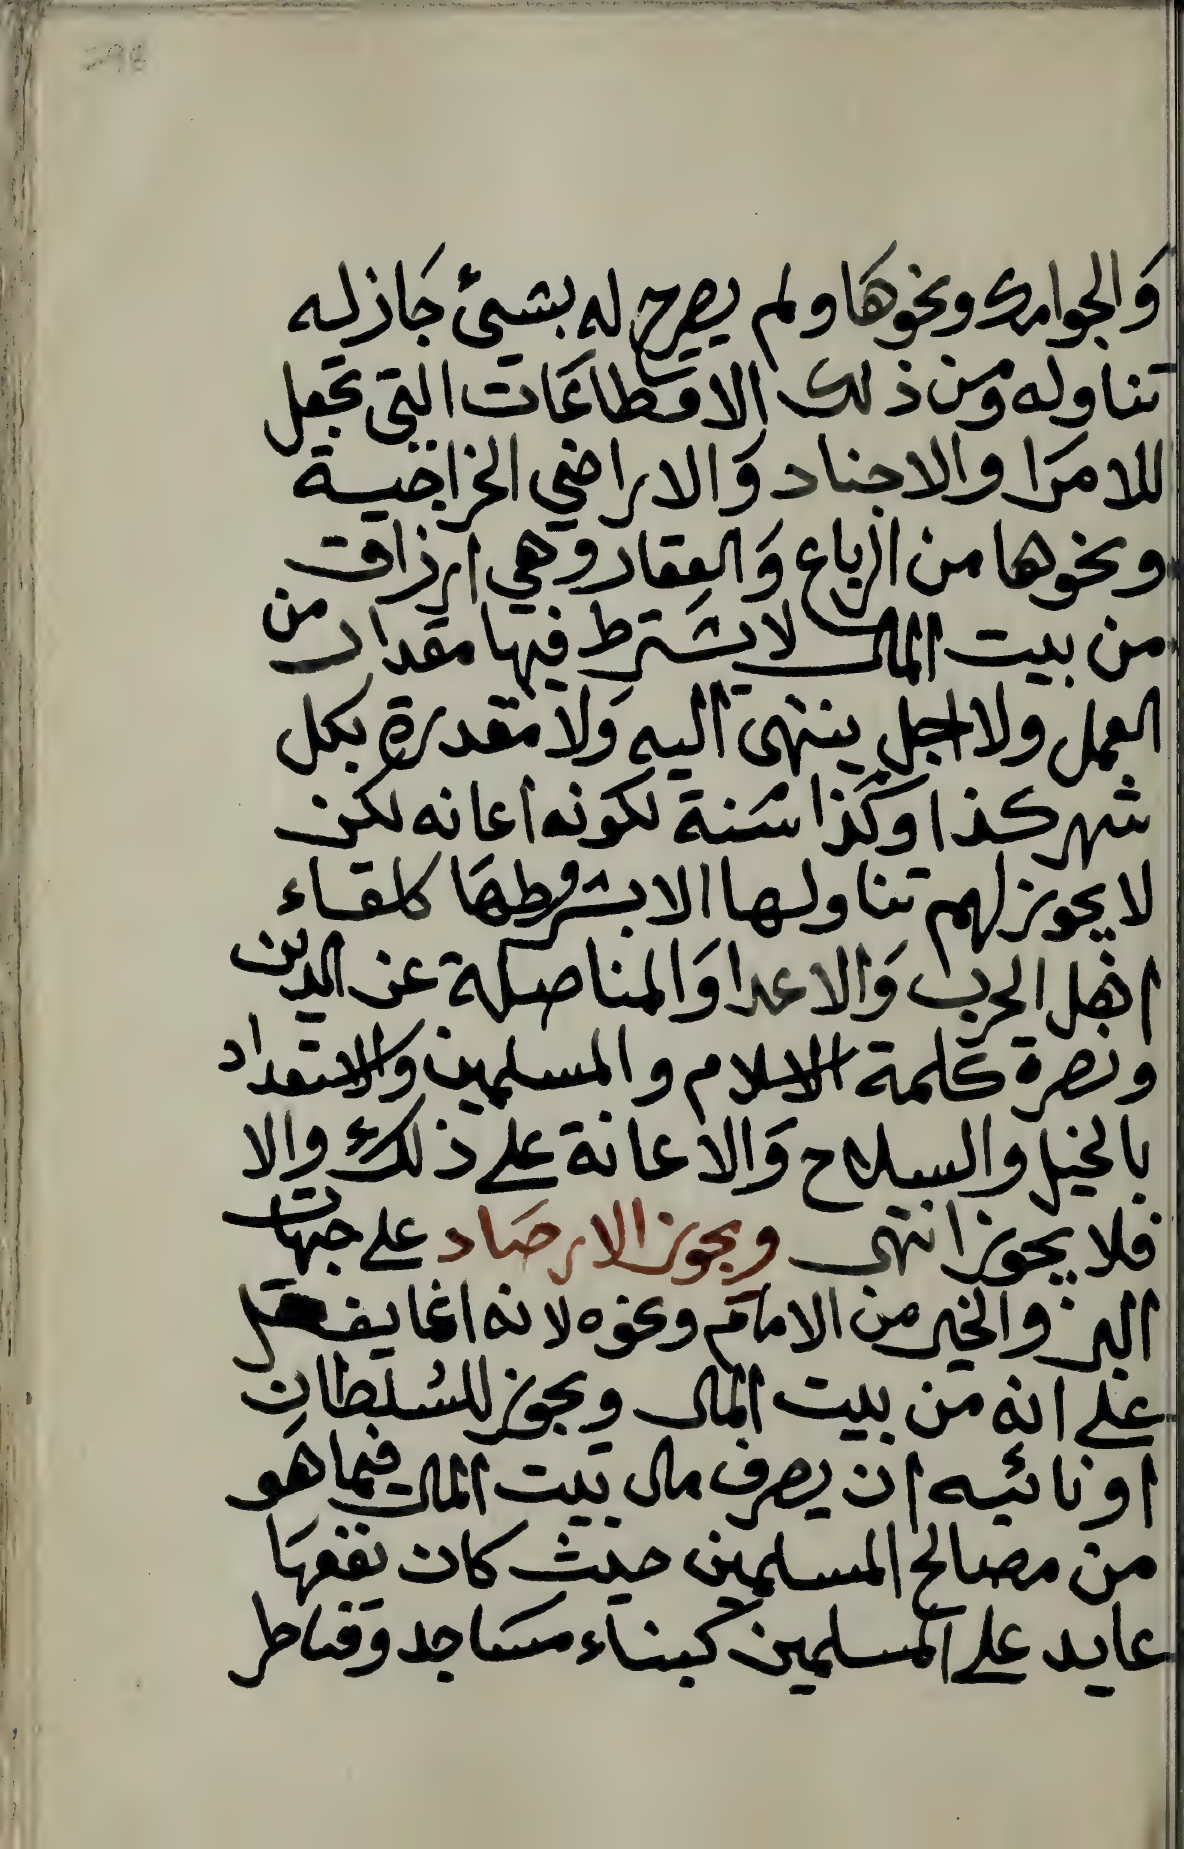 والجوامك ونحوها ولم يصرح له بشيئ جاز له
تناوله ومن ذلك الاقطاعات التي تجعل
للامرا والاجناد والاراضي الخراجية
ونحوها من الرباع والعقار وهي ارزاق
من بيت المال لا يشترط فيها مقدار من
العمل ولا اجل ينتهى اليه ولا مقدرة بكل
شهر كذا وكذا سنة لكونه اعانه لكن
لا يجوز لهم تناولها الا بشرطها كلقاء
اهل الحرب والاعدا والمناصلة عن الدين
ونصرة كلمة الاسلام والمسلمين والاستعداد
بالخيل والسلاح والاعانة على ذلك والا
فلا يجوز انتهى ويجوز الارصاد على جهات
البر والخير من الامام ونحوه لانه انما يفعل
على انه من بيت المال ويجوز للسلطان
او نائبه ان يصرف مال بيت المال فيما هو
من مصالح المسلمين حيث كان نفعها
عايد على المسلمين كبناء مساجد وقناطر